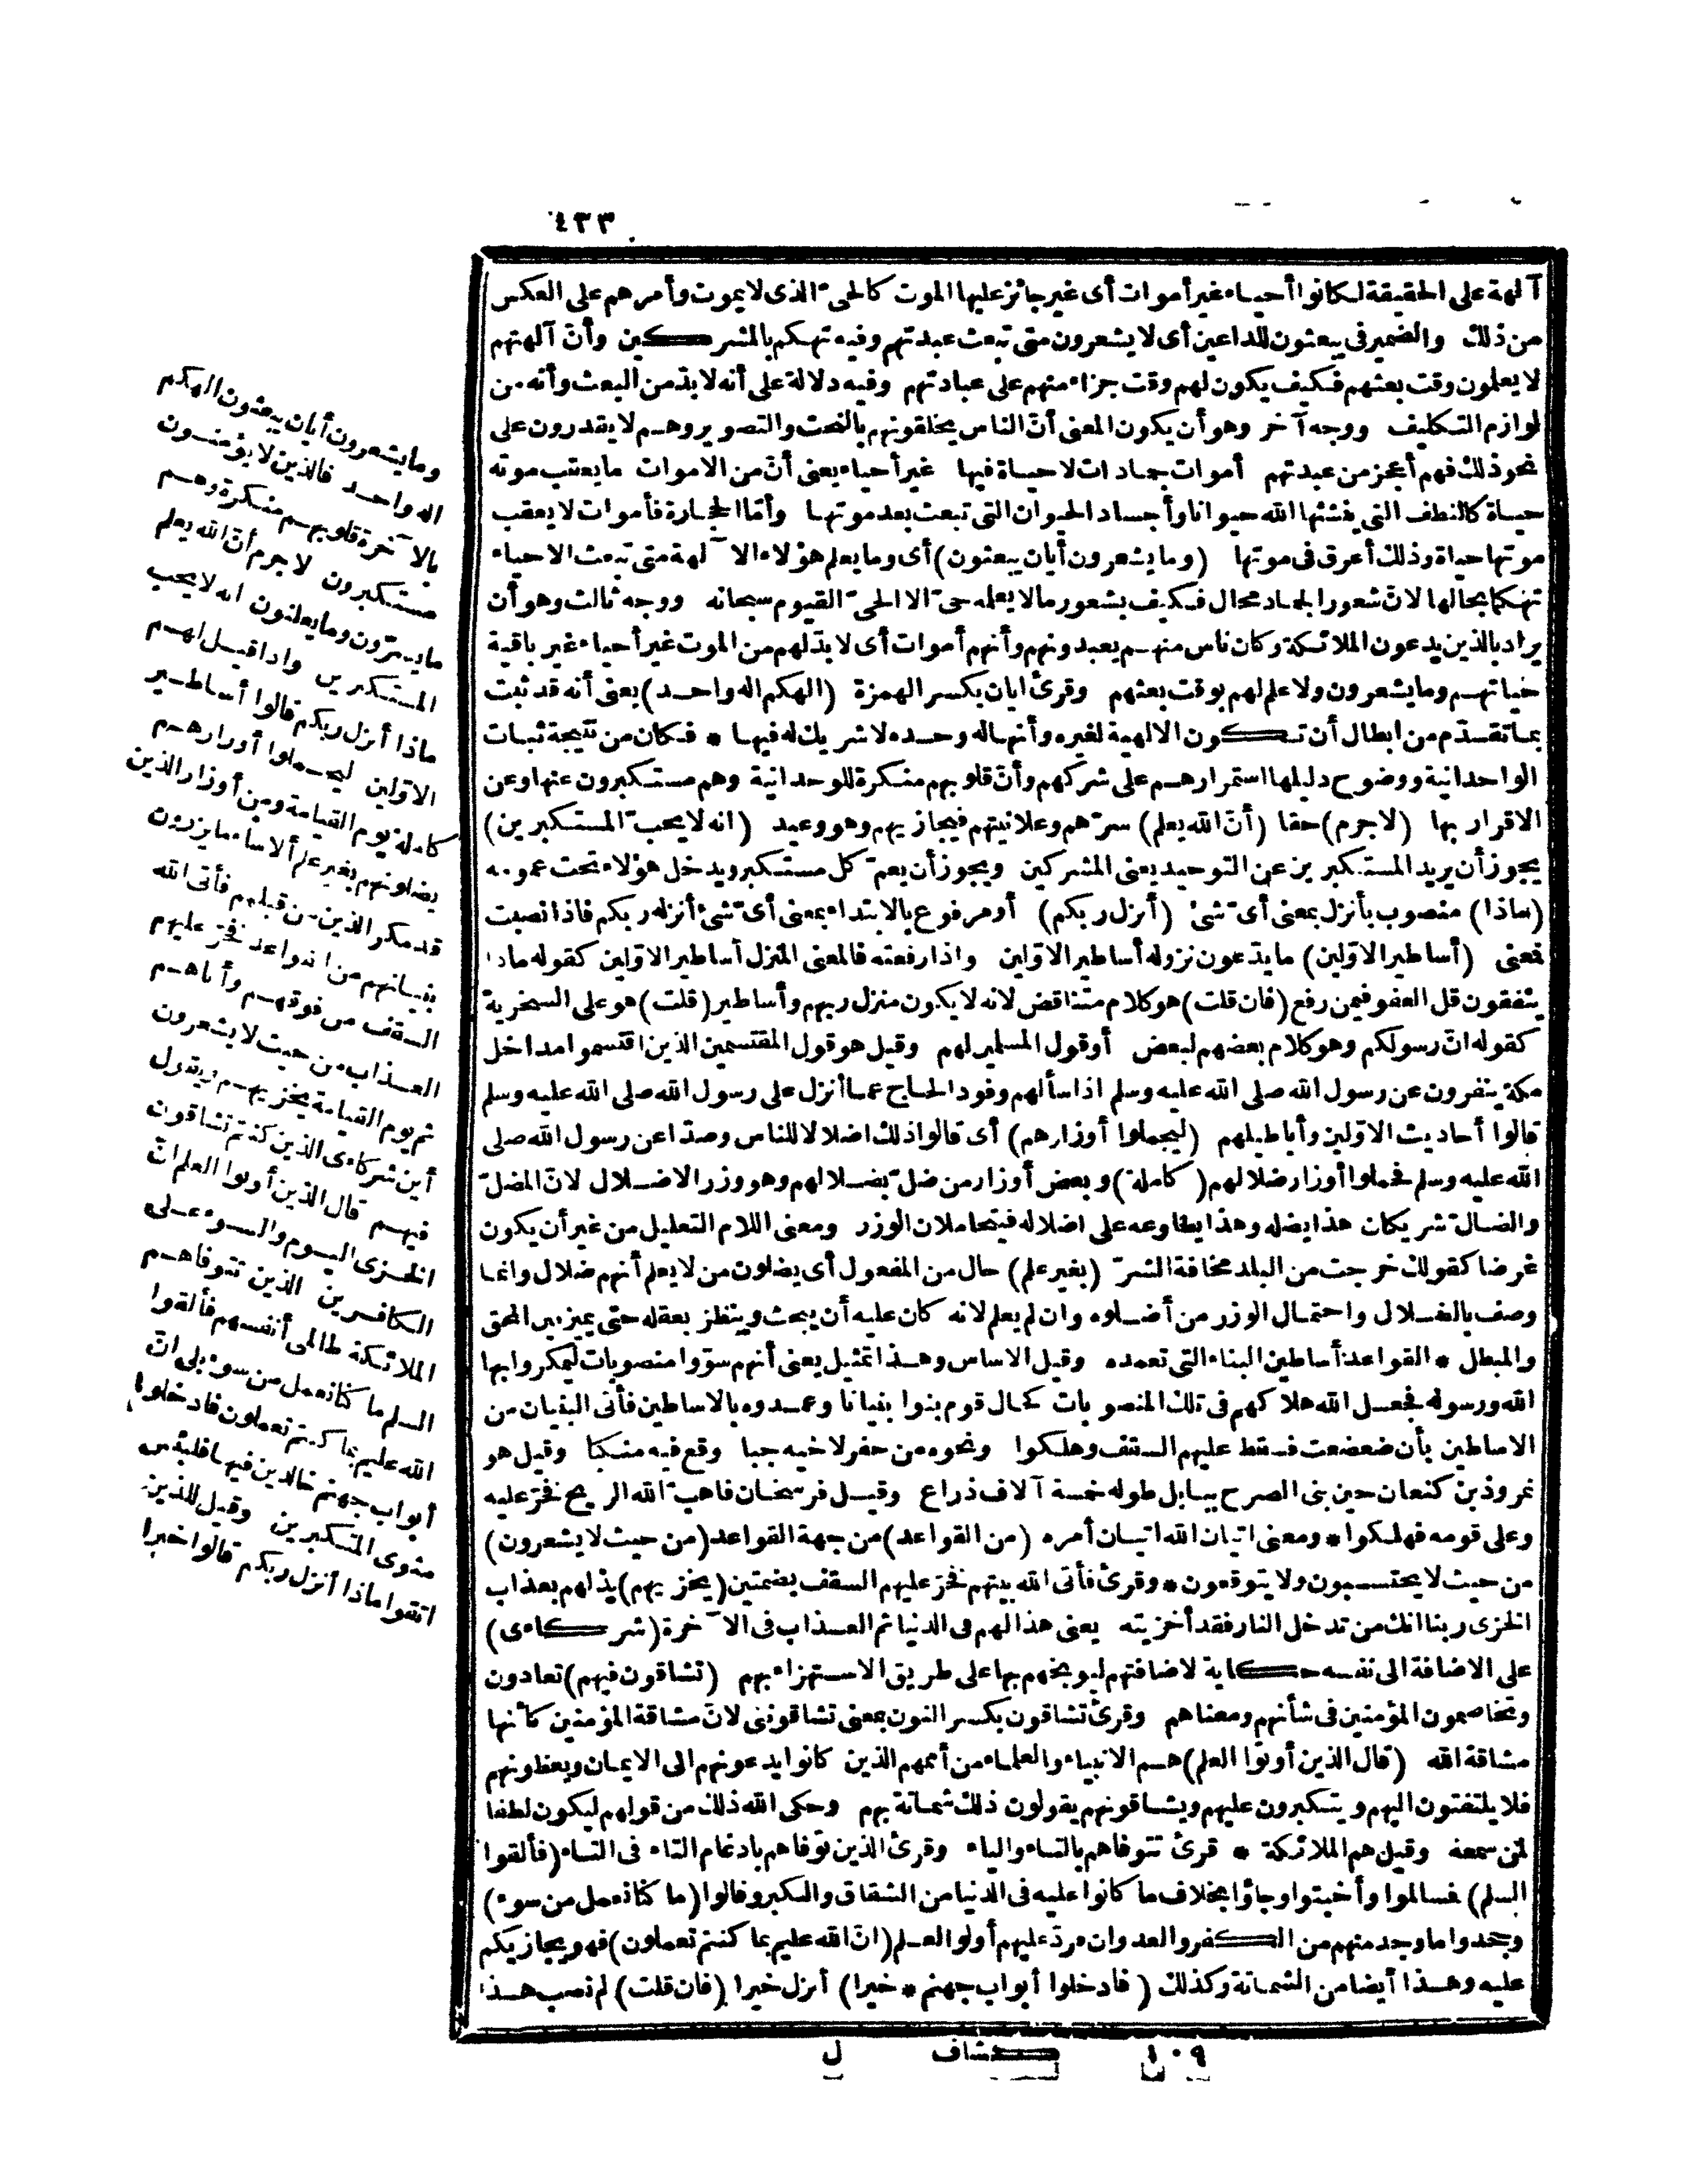 ٤٣٣
آلهة على الحقيقة لكانوا أحياء غير أموات أى غير جائز عليها الموت كالحىّ الذى لا يموت وأمرهم على العكس
من ذلك والضمير فى يبعثون للداعين أى لا يشعرون متى تبعث عبدتهم وفيه تهكم بالمشركين وأنّ آلهتهم
لا يعلمون وقت بعثهم فكيف يكون لهم وقت جزاء منهم على عبادتهم وفيه دلالة على أنه لا بدّ من البعث وأنه من
لوازم التكليف ووجه آخر وهو أن يكون المعنى أنّ الناس يخلقونهم بالنحت والتصوير وهم لا يقدرون على
نحو ذلك فهم أعجز من عبدتهم أموات جمادات لا حياة فيها غير أحياء يعنى أنّ من الاموات ما يعقب موته
حياة كالنطف التى ينشئها الله حيوانا وأجساد الحيوان التى تبعث بعد موتها وأمّا الحجارة فأموات لا يعقب
موتها حياة وذلك أعرق فى موتها (وما يشعرون أيان يبعثون) أى وما يعلم هؤلاء الآلهة متى تبعث الاحياء
تهكما بحالها لانّ شعور الجماد محال فكيف بشعور ما لا يعلمه حىّ الا الحىّ القيوم سبحانه ووجه ثالث وهو أن
يراد بالذين يدعون الملائكة وكان ناس منهم يعبدونهم وأنهم أموات أى لا بدّ لهم من الموت غير أحياء غير باقية
حياتهم وما يشعرون ولا علم لهم بوقت بعثهم وقرئ ايان بكسر الهمزة (الهكم اله واحد) يعنى أنه قد ثبت
بما تقدّم من ابطال أن تكون الالهية لغيره وأنها له وحده لا شريك له فيها * فكان من نتيجة ثبات
الواحدانية ووضوح دليلها استمرارهم على شركهم وأنّ قلوبهم منكرة للوحدانية وهم مستكبرون عنها وعن
الاقرار بها (لا جرم) حقا (أنّ الله يعلم) سرّهم وعلانيتهم فيجازيهم وهو وعيد (انه لا يحبّ المستكبرين)
يجوز أن يريد المستكبرين عن التوحيد يعنى المشركين ويجوز أن يعمّ كل مستكبر ويدخل هؤلاء تحت عمومه
(ماذا) منصوب بأنزل بمعنى أىّ شئ (أنزل ربكم) أو مرفوع بالابتداء بمعنى أىّ شئ أنزله ربكم فاذا نصبت
فمعنى (أساطير الاوّلين) ما يدّعون نزوله أساطير الاوّلين واذا رفعته فالمعنى المنزل أساطير الاوّلين كقوله ماذا
ينفقون قل العفو فيمن رفع (فان قلت) هو كلام متناقض لانه لا يكون منزل ربهم وأساطير (قلت) هو على السخرية
كقوله انّ رسولكم وهو كلام بعضهم لبعض أو قول المسلمين لهم وقيل هو قول المقتسمين الذين اقتسموا مداخل
مكة ينفرون عن رسول الله صلى الله عليه وسلم اذا سألهم وفود الحاج عما أنزل على رسول الله صلى الله عليه وسلم
قالوا أحاديث الاوّلين وأباطيلهم (ليحملوا أوزارهم) أى قالوا ذلك اضلالا للناس وصدّا عن رسول الله صلى
الله عليه وسلم فحملوا أوزار ضلالهم (كاملة) وبعض أوزار من ضلّ بضلالهم وهو وزر الاضلال لانّ المضلّ
والضالّ شريكان هذا يضله وهذا يطاوعه على اضلاله فيتحاملان الوزر ومعنى اللام التعليل من غير أن يكون
غرضا كقولك خرجت من البلد مخافة الشرّ (بغير علم) حال من المفعول أى يضلون من لا يعلم أنهم ضلال وانما
وصف بالضلال واحتمال الوزر من أضلوه وان لم يعلم لانه كان عليه أن يبحث وينظر بعقله حتى يميز بين المحق
والمبطل * القواعد أساطين البناء التى تعمده وقيل الاساس وهذا تمثيل يعنى أنهم سوّوا منصوبات ليمكروا بها
الله ورسوله فجعل الله هلاكهم فى تلك المنصوبات كحال قوم بنوا بنيانا وعمدوه بالاساطين فأتى البنيان من
الاساطين بأن ضعضعت فسقط عليهم السقف وهلكوا ونحوه من حفر لاخيه جبا وقع فيه منكبا وقيل هو
نمروذ بن كنعان حين بنى الصرح ببابل طوله خمسة آلاف ذراع وقيل فرسخان فاهبّ الله الريح فخرّ عليه
وعلى قومه فهلكوا * ومعنى اتيان الله اتيان أمره (من القواعد) من جهة القواعد (من حيث لا يشعرون)
من حيث لا يحتسبون ولا يتوقعون * وقرئ فأتى الله بيتهم فخرّ عليهم السقف بضمتين (يخزيهم) يذلهم بعذاب
الخزى ربنا انك من تدخل النار فقد أخزيته يعنى هذا لهم فى الدنيا ثم العذاب فى الآخرة (شركاءى)
على الاضافة الى نفسه حكاية لاضافتهم ليوبخهم بها على طريق الاستهزاء بهم (تشاقون فيهم) تعادون
وتخاصمون المؤمنين فى شأنهم ومعناهم وقرئ تشاقون بكسر النون بمعنى تشاقوننى لانّ مشاقة المؤمنين كأنها
مشاقة الله (قال الذين أوتوا العلم) هم الانبياء والعلماء من أممهم الذين كانوا يدعونهم الى الايمان ويعظونهم
فلا يلتفتون اليهم ويتكبرون عليهم ويشاقونهم يقولون ذلك شماتة بهم وحكى الله ذلك من قولهم ليكون لطفا
لمن سمعه وقيل هم الملائكة * قرئ تتوفاهم بالتاء والياء وقرئ الذين توّفاهم بادغام التاء فى التاء (فألقوا
السلم) فسالموا وأخبتوا وجاؤا بخلاف ما كانوا عليه فى الدنيا من الشقاق والكبر وقالوا (ما كنا نعمل من سوء)
وجحدوا ما وجد منهم من الكفر والعدوان فردّ عليهم أولو العلم (انّ الله عليم بما كنتم تعملون) فهو يجازيكم
عليه وهذا أيضا من الشماتة وكذلك (فادخلوا أبواب جهنم * خيرا) أنزل خيرا (فان قلت) لم نصب هذا
وما يشعرون أيان يبعثون الهكم
اله واحد فالذين لا يؤمنون
بالآخرة قلوبهم منكرة وهم
مستكبرون لا جرم أنّ الله يعلم
ما يسرّون وما يعلنون انه لا يحب
المستكبرين واذا قيل لهم
ماذا أنزل ربكم قالوا أساطير
الاوّلين ليحملوا أوزارهم
كاملة يوم القيامة ومن أوزار الذين
يضلونهم بغير علم ألا ساء ما يزرون
قد مكر الذين من قبلهم فأتى الله
بنيانهم من القواعد فخرّ عليهم
السقف من فوقهم وأتاهم
العذاب من حيث لا يشعرون
ثم يوم القيامة يخزيهم ويقول
أين شركاءى الذين كنتم تشاقون
فيهم قال الذين أوتوا العلم انّ
الخزى اليوم والسوء على
الكافرين الذين تتوفاهم
الملائكة ظالمى أنفسهم فألقوا
السلم ما كنا نعمل من سوء بلى انّ
الله عليم بما كنتم تعملون فادخلوا
أبواب جهنم خالدين فيها فلبئس
مثوى المتكبرين وقيل للذين
اتقوا ماذا أنزل ربكم قالوا خيرا
١٠٩ كشاف ل